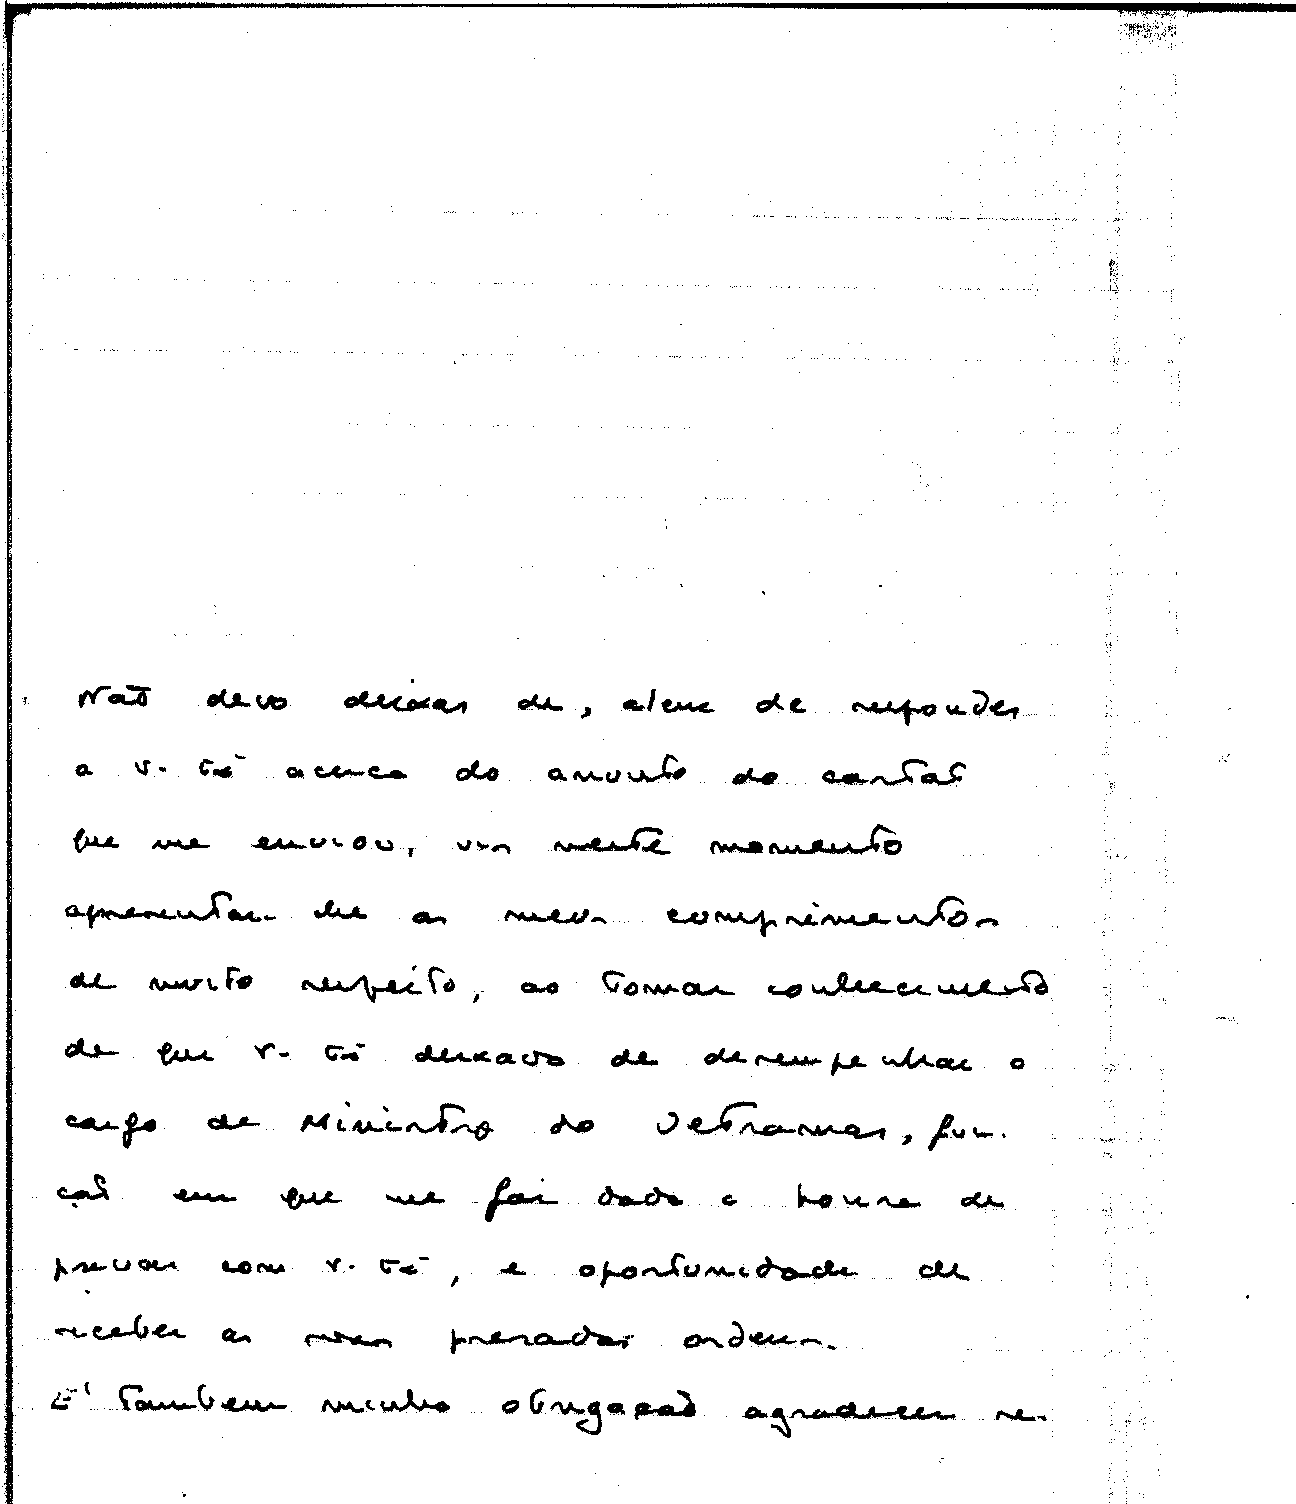 Não devo deixar de, alem de responder
a V. Exª acerca do assunto da carta
que me enviou, vir neste momento
apresentar-lhe os meus comprimentos
de muito respeito, ao tomar conhecimento
de que V. Exª deixava de desempenhar o
cargo de Ministro do Ultramar, fun-
ção em que me foi dada a honra de
privar com V. Exª, e oportunidade de
receber as suas presadas ordens.
E' tambem minha obrigação agradecer re-